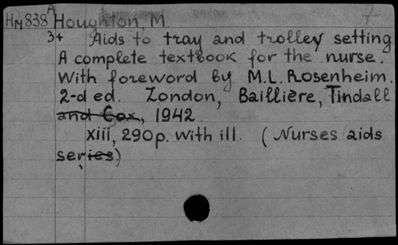 HM838 A Houghton, M.
3+ Aids to tray and trolley setting
A complete textbook for the nurse.
With foreword by M.L. Rosenheim.
2-d ed. London, Baillière, Tindall
and Cox, 1942.
xiii, 290p. With ill. (Nurses aids
series)